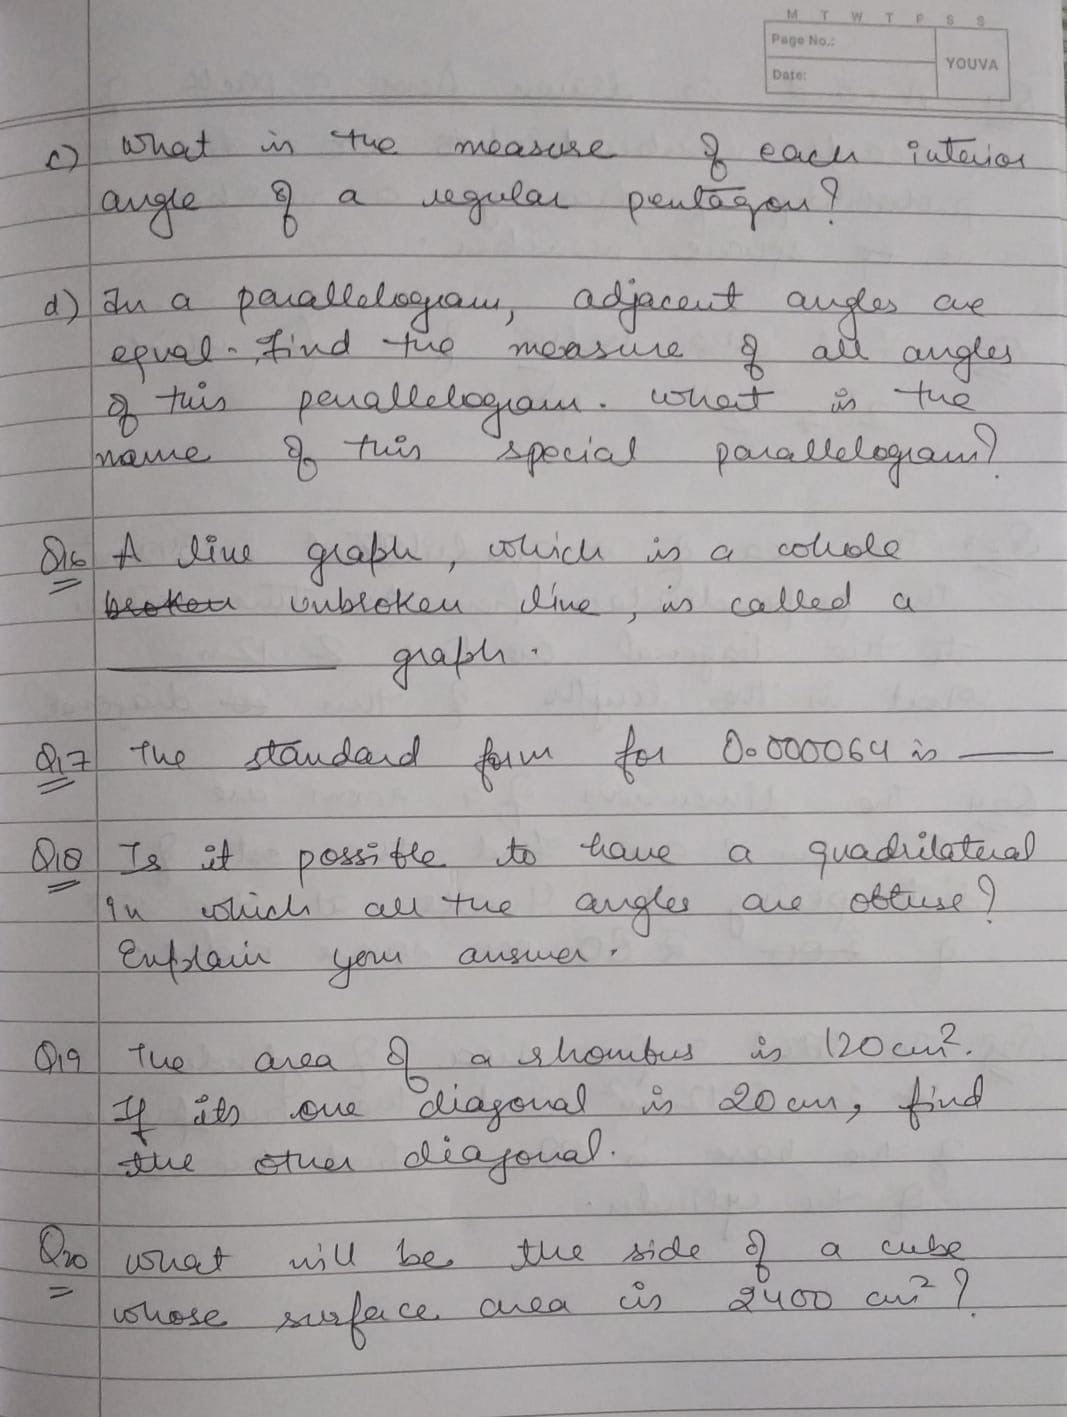 M T W T F S S
Page No.:
Date:
YOUVA
c) What is the measure of each interior
angle of a regular pentagon?
d) In a parallelogram, adjacent angles are
equal. Find the measure of all angles
of this parallelogram. What is the
name of this special parallelogram?
Q16 A line graph, which is a whole
broken unbroken line, is called a
__________ graph.
Q17 The standard form for 0.000064 is ____
Q18 Is it possible to have a quadrilateral
in which all the angles are obtuse?
Explain your answer.
Q19 The area of a rhombus is 120 cm².
If its one diagonal is 20 cm, find
the other diagonal.
Q20 What will be the side of a cube
whose surface area is 2400 cm²?